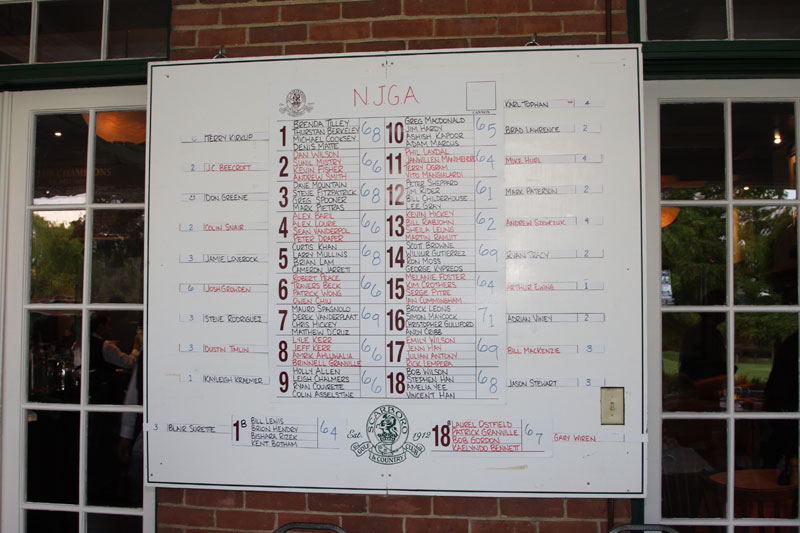 N.J.G.A
1
BRENDA TILLEY
THURSTAN BERKELEY
MICHAEL COOKSEY
DENIS MATTE
68
10
GREG MACDONALD
JIM HARDY
ASHISH KAPOOR
ADAM MARCUS
65
KARL TOPHAN
4
6
TERRY KIRKUP
BRAD LAWRENCE
2
2
DAN WILSON
SUNIL MISTRY
KEVIN FISHER
ANDREW SMITH
66
11
PHIL LAVDAL
TERRY OGRAM
VITO MANGIALARDI
64
2
J.C. BEECROFT
MIKE HURL
4
3
DAVE MOUNTAIN
STEVE FITZPATRICK
GREG SPOONER
MARK PETRAS
68
12
PETER SHEPPARD
JIM KIDER
BILL CHILDERHOUSE
LEE GRAY
61
0
DON GREENE
MARK PATERSON
2
4
ALEX BARIL
ALEX LOURIE
SEAN VANDERPOL
PETER DRAPER
66
13
KEVIN HICKEY
BILL RABJOHN
SHEILA LEUNG
MARTIN RAMJIT
62
2
COLIN SNAIR
ANDREW
4
5
CURTIS KHAN
LARRY MULLINS
BRIAN LAM
CAMERON JARRETT
68
14
SCOTT BROWNE
WILVUR GUTIERREZ
RON MOSS
GEORGE KYPREOS
69
3
JAMIE LOVEROCK
RYAN TRACY
2
6
ROBERT PEACE
TRAVERS BECK
PATRICK WONG
OWEN CHIU
66
15
MELANIE FOSTER
KIM CROTHERS
SERGE PITRE
IAN CUNNINGHAM
64
6
JOSH GROWDEN
ARTHUR EWING
1
7
MAURO SPAGNOLO
DEREK VANDERPLAAT
CHRIS HICKEY
MATTHEW D'CRUZ
69
16
BROCK LEONS
SIMON MAYCOCK
CHRISTOPHER GULLIFORD
ANDY CRIBB
71
3
STEVE RODRIGUEZ
ADRIAN VINEY
2
8
LYLE KERR
JEFF KERR
AMRIK AHLUWALIA
BRINNELL GRANVILLE
66
17
EMILY WILSON
JENN HAY
JULIAN ANTONY
RICK LEMPERA
69
3
DUSTIN TIMLIN
BILL MACKENZIE
3
9
HOLLY ALLEN
LEIGH CHALMERS
RYAN COUVRETTE
COLIN ASSELSTINE
66
18
BOB WILSON
STEPHEN HAN
AMELIA YEE
VINCENT HAN
68
1
KAYLEIGH KRAEMER
JASON STEWART
3
3
BLAIR SURETTE
1B
BILL LEWIS
BRION HENDRY
BISHARA RIZEK
KENT BOTHAM
64
Est. 1912
SCARBORO
GOLF CLUB
& COUNTRY
18B
LAUREL OSTFIELD
PATRICK GRANVILLE
BOB GORDON
KAELYNDO BENNETT
67
GARY WIREN